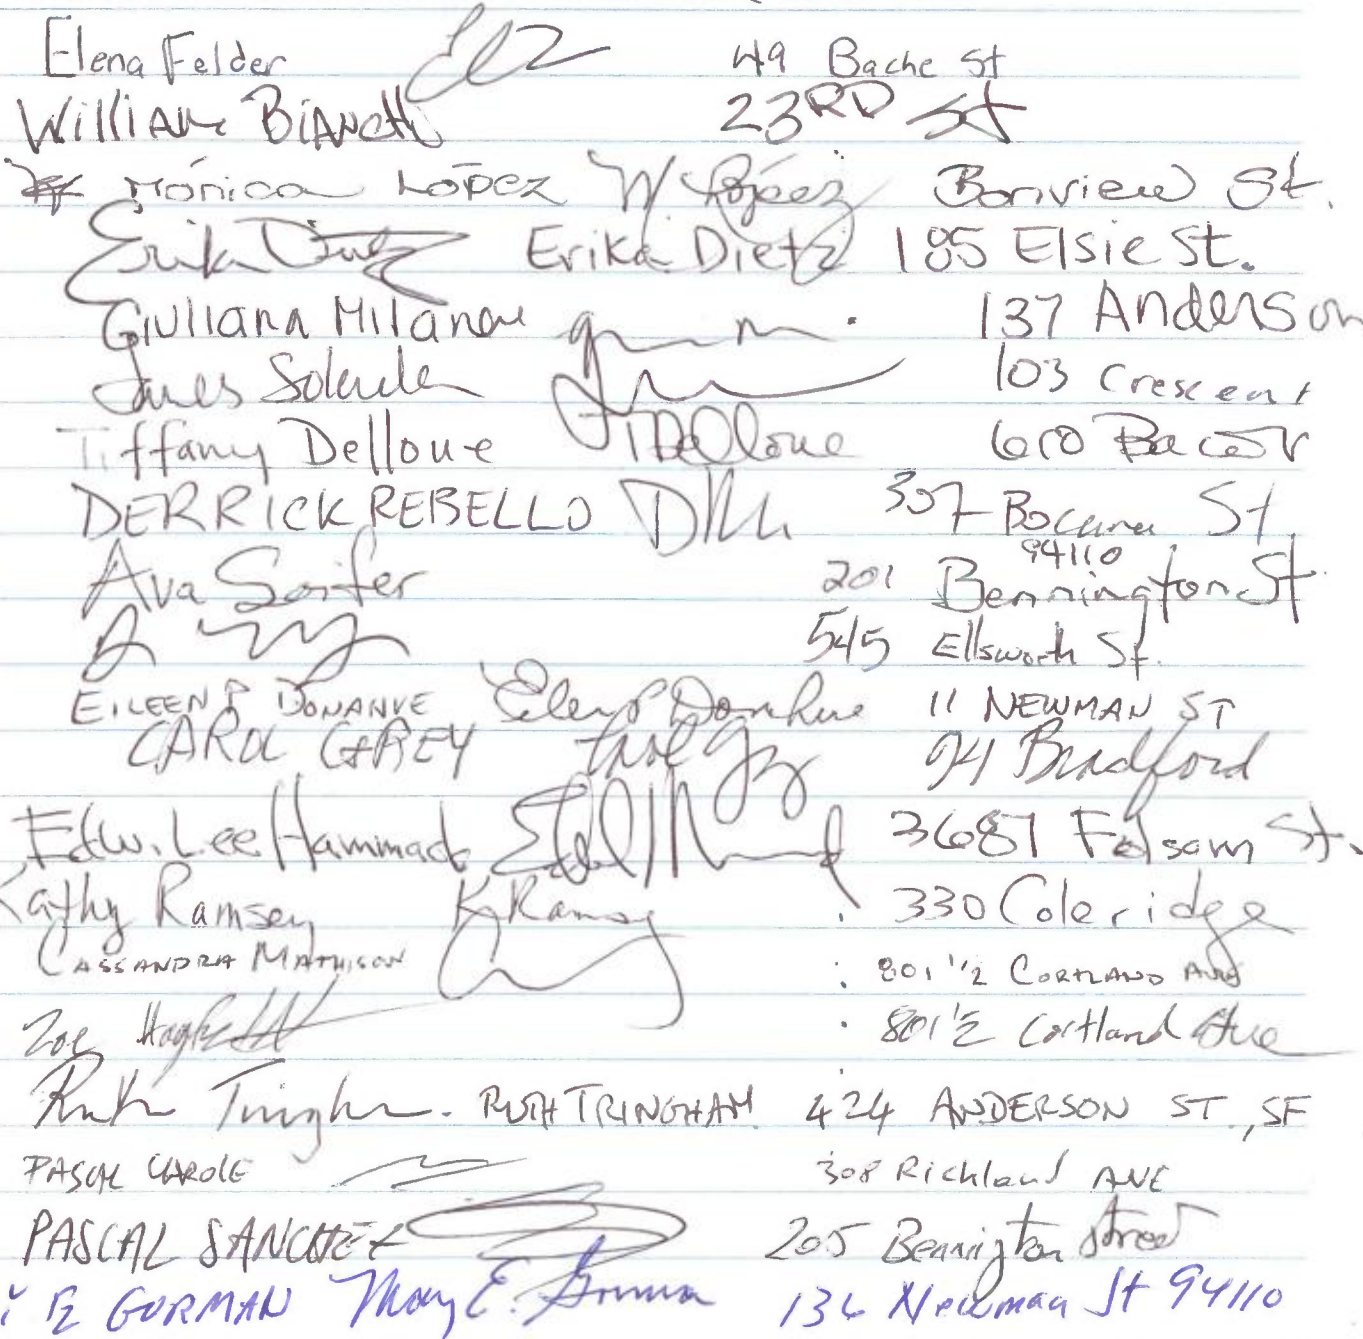 Elena Felder 49 Bache St
William Bianchi 23RD St
Mónica López M López Bonview St.
Erika Dietz Erika Dietz 185 Elsie St.
Giuliana Milanese 137 Anderson
James 103 Crescent
Tiffany Delloue T Delloue 610 Bacon
DERRICK REBELLO 307 Bocana St
94110
Ava Seifer 201 Bennington St
545 Ellsworth St.
EILEEN P DONAHUE Eileen P Donahue 11 NEWMAN ST
CAROL GREY Carol Grey 94 Bradford
Edw. Lee Hammack 3687 Folsom St.
Kathy Ramsey K Ramsey 330 Coleridge
CASSANDRA MATHISON 801 1/2 CORTLAND AVE
Zoe 801 1/2 Cortland Ave
Ruth Tringham. RUTH TRINGHAM 424 ANDERSON ST., SF
PASCAL 308 Richland AVE
PASCAL SANCHEZ 205 Bennington Street
E GORMAN Mary E. Gorman 136 Newman St 94110